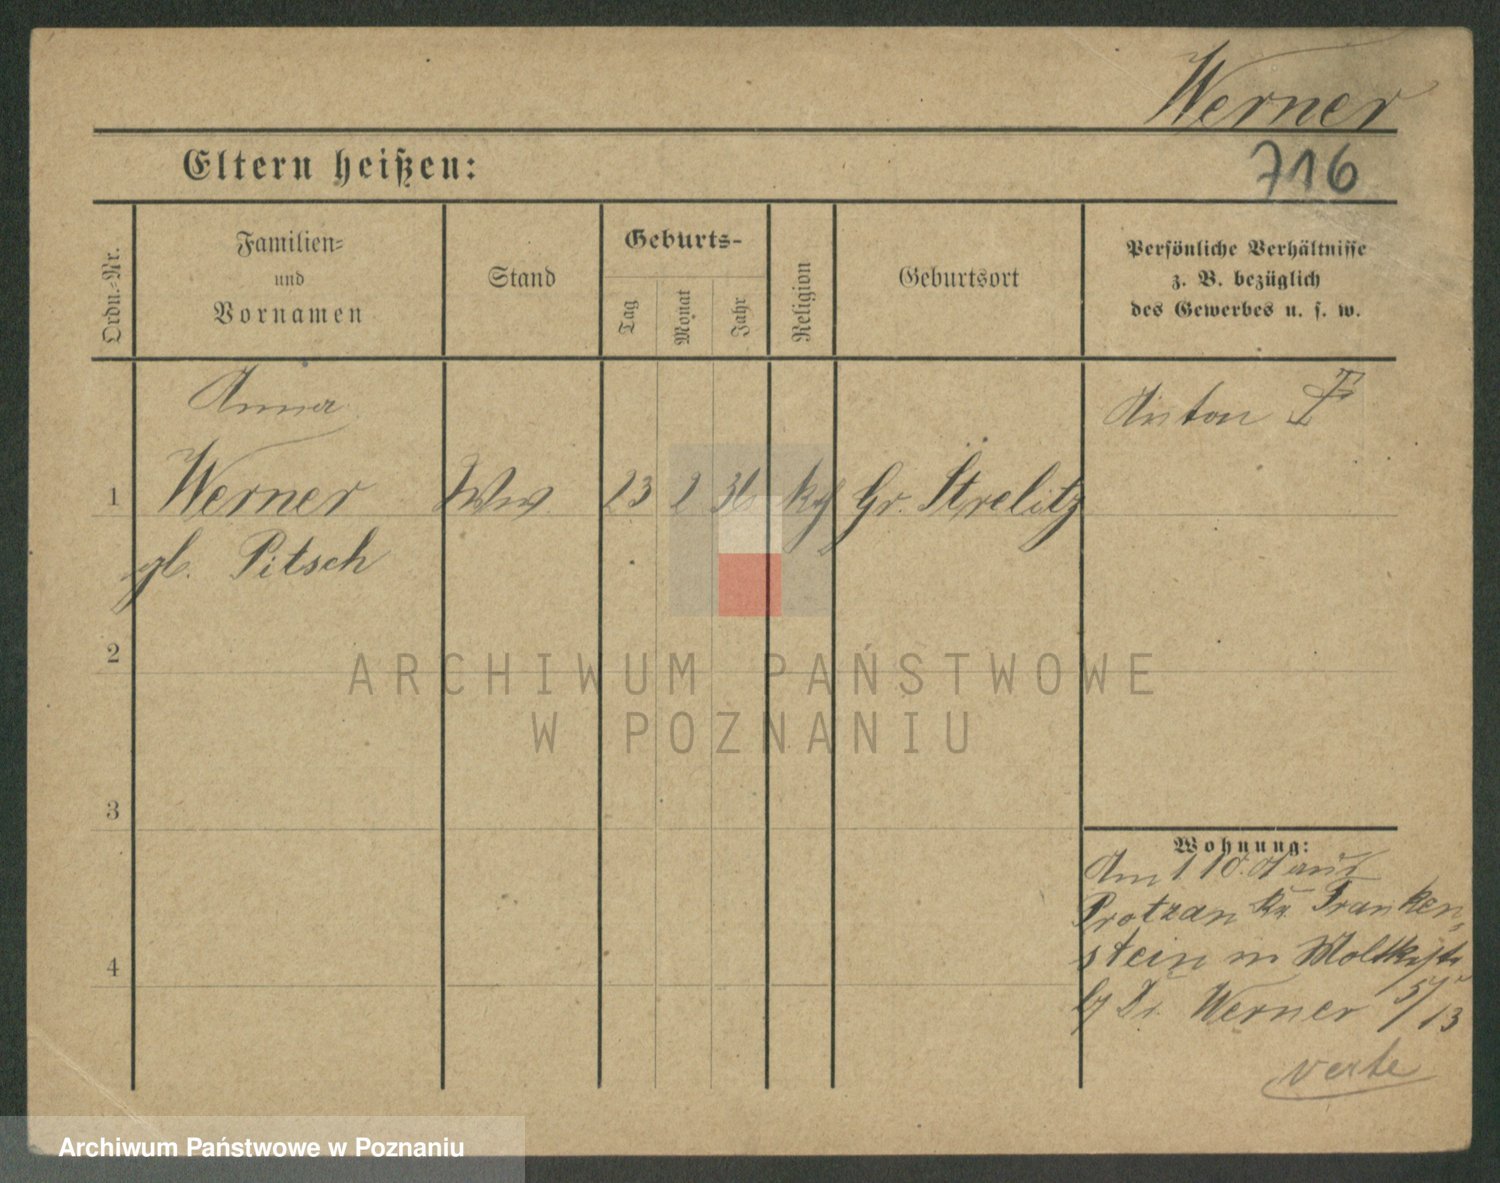 Werner
716
Eltern heißen:
Ordn.-Nr.
Familien- und Vornamen
Stand
Geburts-
Tag
Monat
Jahr
Religion
Geburtsort
Persönliche Verhältnisse
z. B. bezüglich
des Gewerbes u. s. w.
Anna
Anton
1 Werner Ww 23 2 36 Gr. Strelitz
gb. Pitsch
2
3
4
Wohnung:
Am 1 10. aus
Protzan Kr. Franken-
stein in Moltkestr
Werner 5/13
verte
ARCHIWUM PAŃSTWOWE
W POZNANIU
Archiwum Państwowe w Poznaniu